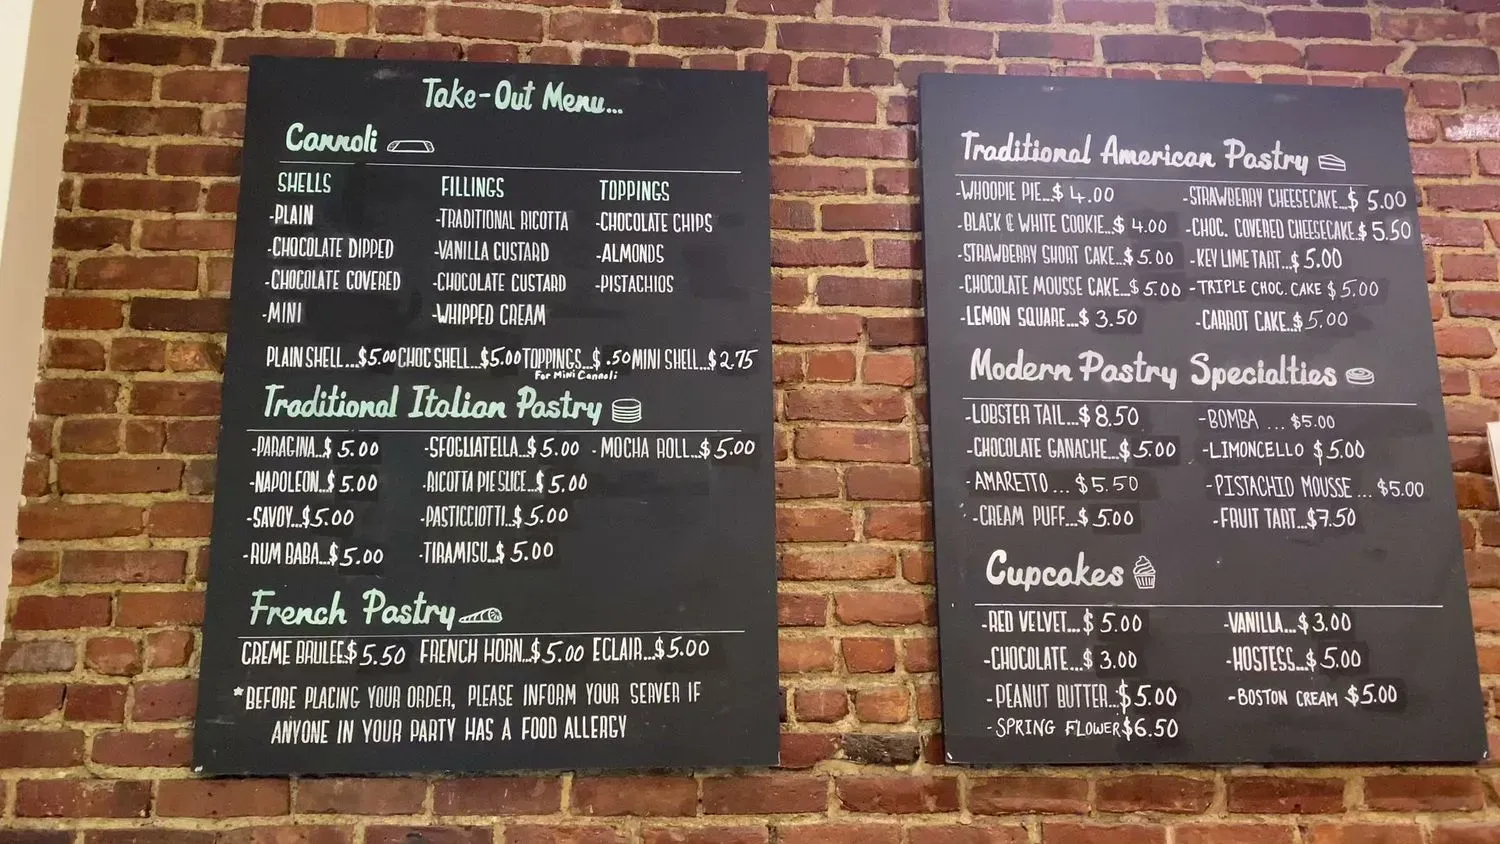 Take-Out Menu...
Cannoli
SHELLS
-PLAIN
-CHOCOLATE DIPPED
-CHOCOLATE COVERED
-MINI
FILLINGS
-TRADITIONAL RICOTTA
-VANILLA CUSTARD
-CHOCOLATE CUSTARD
-WHIPPED CREAM
TOPPINGS
-CHOCOLATE CHIPS
-ALMONDS
-PISTACHIOS
PLAIN SHELL...$5.00 CHOC SHELL...$5.00 TOPPINGS...$.50 MINI SHELL...$2.75
For Mini Cannoli
Traditional Italian Pastry
-PARAGINA...$5.00 -SFOGLIATELLA...$5.00 -MOCHA ROLL...$5.00
-NAPOLEON...$5.00 -RICOTTA PIE SLICE...$5.00
-SAVOY...$5.00 -PASTICCIOTTI...$5.00
-RUM BABA...$5.00 -TIRAMISU...$5.00
French Pastry
CREME BRULEE$5.50 FRENCH HORN...$5.00 ECLAIR...$5.00
*BEFORE PLACING YOUR ORDER, PLEASE INFORM YOUR SERVER IF
ANYONE IN YOUR PARTY HAS A FOOD ALLERGY
Traditional American Pastry
-WHOOPIE PIE...$4.00 -STRAWBERRY CHEESECAKE...$5.00
-BLACK & WHITE COOKIE...$4.00 -CHOC. COVERED CHEESECAKE.$5.50
-STRAWBERRY SHORT CAKE...$5.00 -KEY LIME TART...$5.00
-CHOCOLATE MOUSSE CAKE...$5.00 -TRIPLE CHOC. CAKE $5.00
-LEMON SQUARE....$3.50 -CARROT CAKE..$5.00
Modern Pastry Specialties
-LOBSTER TAIL...$8.50 -BOMBA ... $5.00
-CHOCOLATE GANACHE...$5.00 -LIMONCELLO $5.00
-AMARETTO ... $5.50 -PISTACHIO MOUSSE ... $5.00
-CREAM PUFF...$5.00 -FRUIT TART...$7.50
Cupcakes
-RED VELVET...$5.00 -VANILLA...$3.00
-CHOCOLATE...$3.00 -HOSTESS...$5.00
-PEANUT BUTTER...$5.00 -BOSTON CREAM $5.00
-SPRING FLOWER$6.50